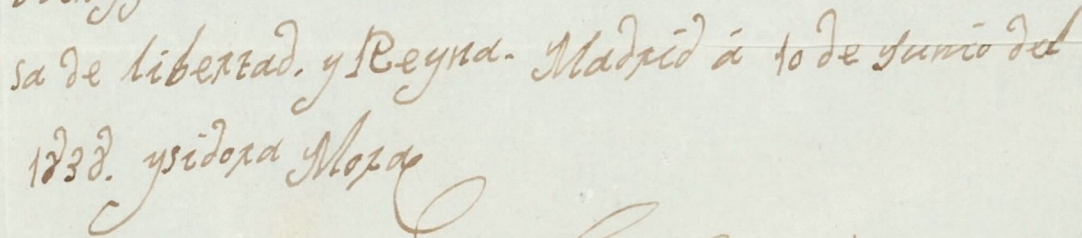 sa de libertad. y Reyna. Madrid á 10 de Junio del
1838. ysidora Mora